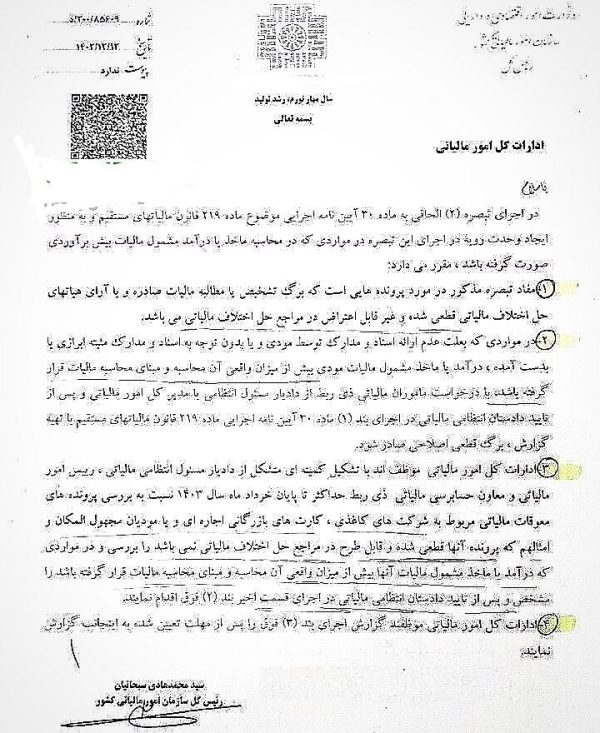 وزارت امور اقتصادی و دارایی
سازمان امور مالیاتی کشور
رئیس کل
شماره د/۲۰۰/۸۵۶۰۹
تاریخ ۱۴۰۲/۱۲/۱۲
پیوست ندارد
سال مهار تورم، رشد تولید
بسمه تعالی
ادارات کل امور مالیاتی
در اجرای تبصره (۲) الحاقی به ماده ۳۰ آیین نامه اجرایی موضوع ماده ۲۱۹ قانون مالیاتهای مستقیم و به منظور
ایجاد وحدت رویه در اجرای این تبصره در مواردی که در محاسبه ماخذ یا درآمد مشمول مالیات بیش برآوردی
صورت گرفته باشد ، مقرر می دارد:
۱- مفاد تبصره مذکور در مورد پرونده هایی است که برگ تشخیص یا مطالبه مالیات صادره و یا آرای هیاتهای
حل اختلاف مالیاتی قطعی شده و غیر قابل اعتراض در مراجع حل اختلاف مالیاتی می باشد.
۲- در مواردی که بعلت عدم ارائه اسناد و مدارک توسط مودی و یا بدون توجه به اسناد و مدارک مثبته ابرازی یا
بدست آمده ، درآمد یا ماخذ مشمول مالیات مودی بیش از میزان واقعی آن محاسبه و مبنای محاسبه مالیات قرار
گرفته باشد، با درخواست ماموران مالیاتی ذی ربط از دادیار مسئول انتظامی یا مدیر کل امور مالیاتی و پس از
تایید دادستان انتظامی مالیاتی در اجرای بند (۱) ماده ۳۰ آیین نامه اجرایی ماده ۲۱۹ قانون مالیاتهای مستقیم با تهیه
گزارش ، برگ قطعی اصلاحی صادر شود.
۳- ادارات کل امور مالیاتی موظف اند با تشکیل کمیته ای متشکل از دادیار مسئول انتظامی مالیاتی ، رییس امور
مالیاتی و معاون حسابرسی مالیاتی ذی ربط حداکثر تا پایان خرداد ماه سال ۱۴۰۳ نسبت به بررسی پرونده های
معوقات مالیاتی مربوط به شرکت های کاغذی ، کارت های بازرگانی اجاره ای و یا مودیان مجهول المکان و
امثالهم که پرونده آنها قطعی شده و قابل طرح در مراجع حل اختلاف مالیاتی نمی باشد را بررسی و در مواردی
که درآمد یا ماخذ مشمول مالیات آنها بیش از میزان واقعی آن محاسبه و مبنای محاسبه مالیات قرار گرفته باشد را
مشخص و پس از تایید دادستان انتظامی مالیاتی در اجرای قسمت اخیر بند (۲) فوق اقدام نمایند.
۴- ادارات کل امور مالیاتی موظفند گزارش اجرای بند (۳) فوق را پس از مهلت تعیین شده به اینجانب گزارش
نمایند.
سید محمدهادی سبحانیان
رئیس کل سازمان امور مالیاتی کشور